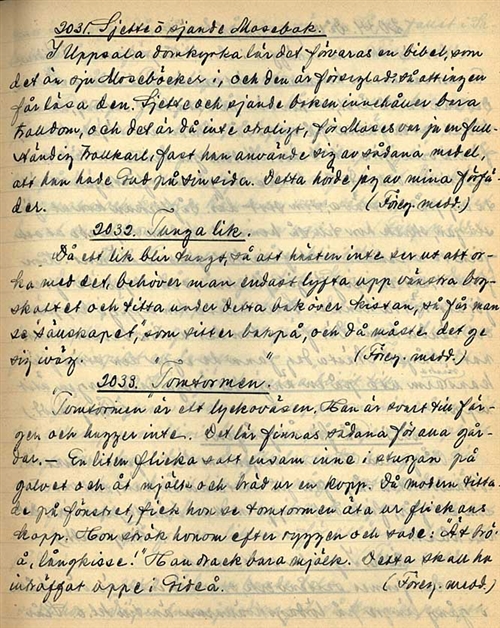 2031. Sjette o sjunde Mosebok.
I Uppsala domkyrka lär det förvaras en bibel, som
det är sju Moseböcker i, och den är förseglad, så att ingen
får läsa den. Sjette och sjunde boken innehåller bara
trolldom, och det är då inte otroligt, för Moses var ju en full-
ständig trollkarl, fast han använde sig av sådana medel,
att han hade Gud på sin sida. Detta hörde jag av mina förfä-
der. (Föreg. medd.)
2032. Tunga lik.
Då ett lik blir tungt, så att hästen inte ser ut att or-
ka med det, behöver man endast lyfta upp vänstra bog-
skaftet och titta under detta baköver kistan, så får man
se "sällskapet", som sitter bakpå, och då måste det ge
sig iväg. (Föreg. medd.)
2033. Tomtormen.
Tomtormen är ett lyckoväsen. Han är svart till fär-
gen och hugger inte. Det lär finnas sådana för alla går-
dar. — En liten flicka satt ensam inne i stugan på
golvet och åt mjölk och bröd ur en kopp. Då modern titta-
de på fönstret, fick hon se tomtormen äta ur flickans
kopp. Hon strök honom efter ryggen och sade: "Ät brö
å, långkisse!" Han drack bara mjölk. Detta skall ha
inträffat uppe i Gideå. (Föreg. medd.)